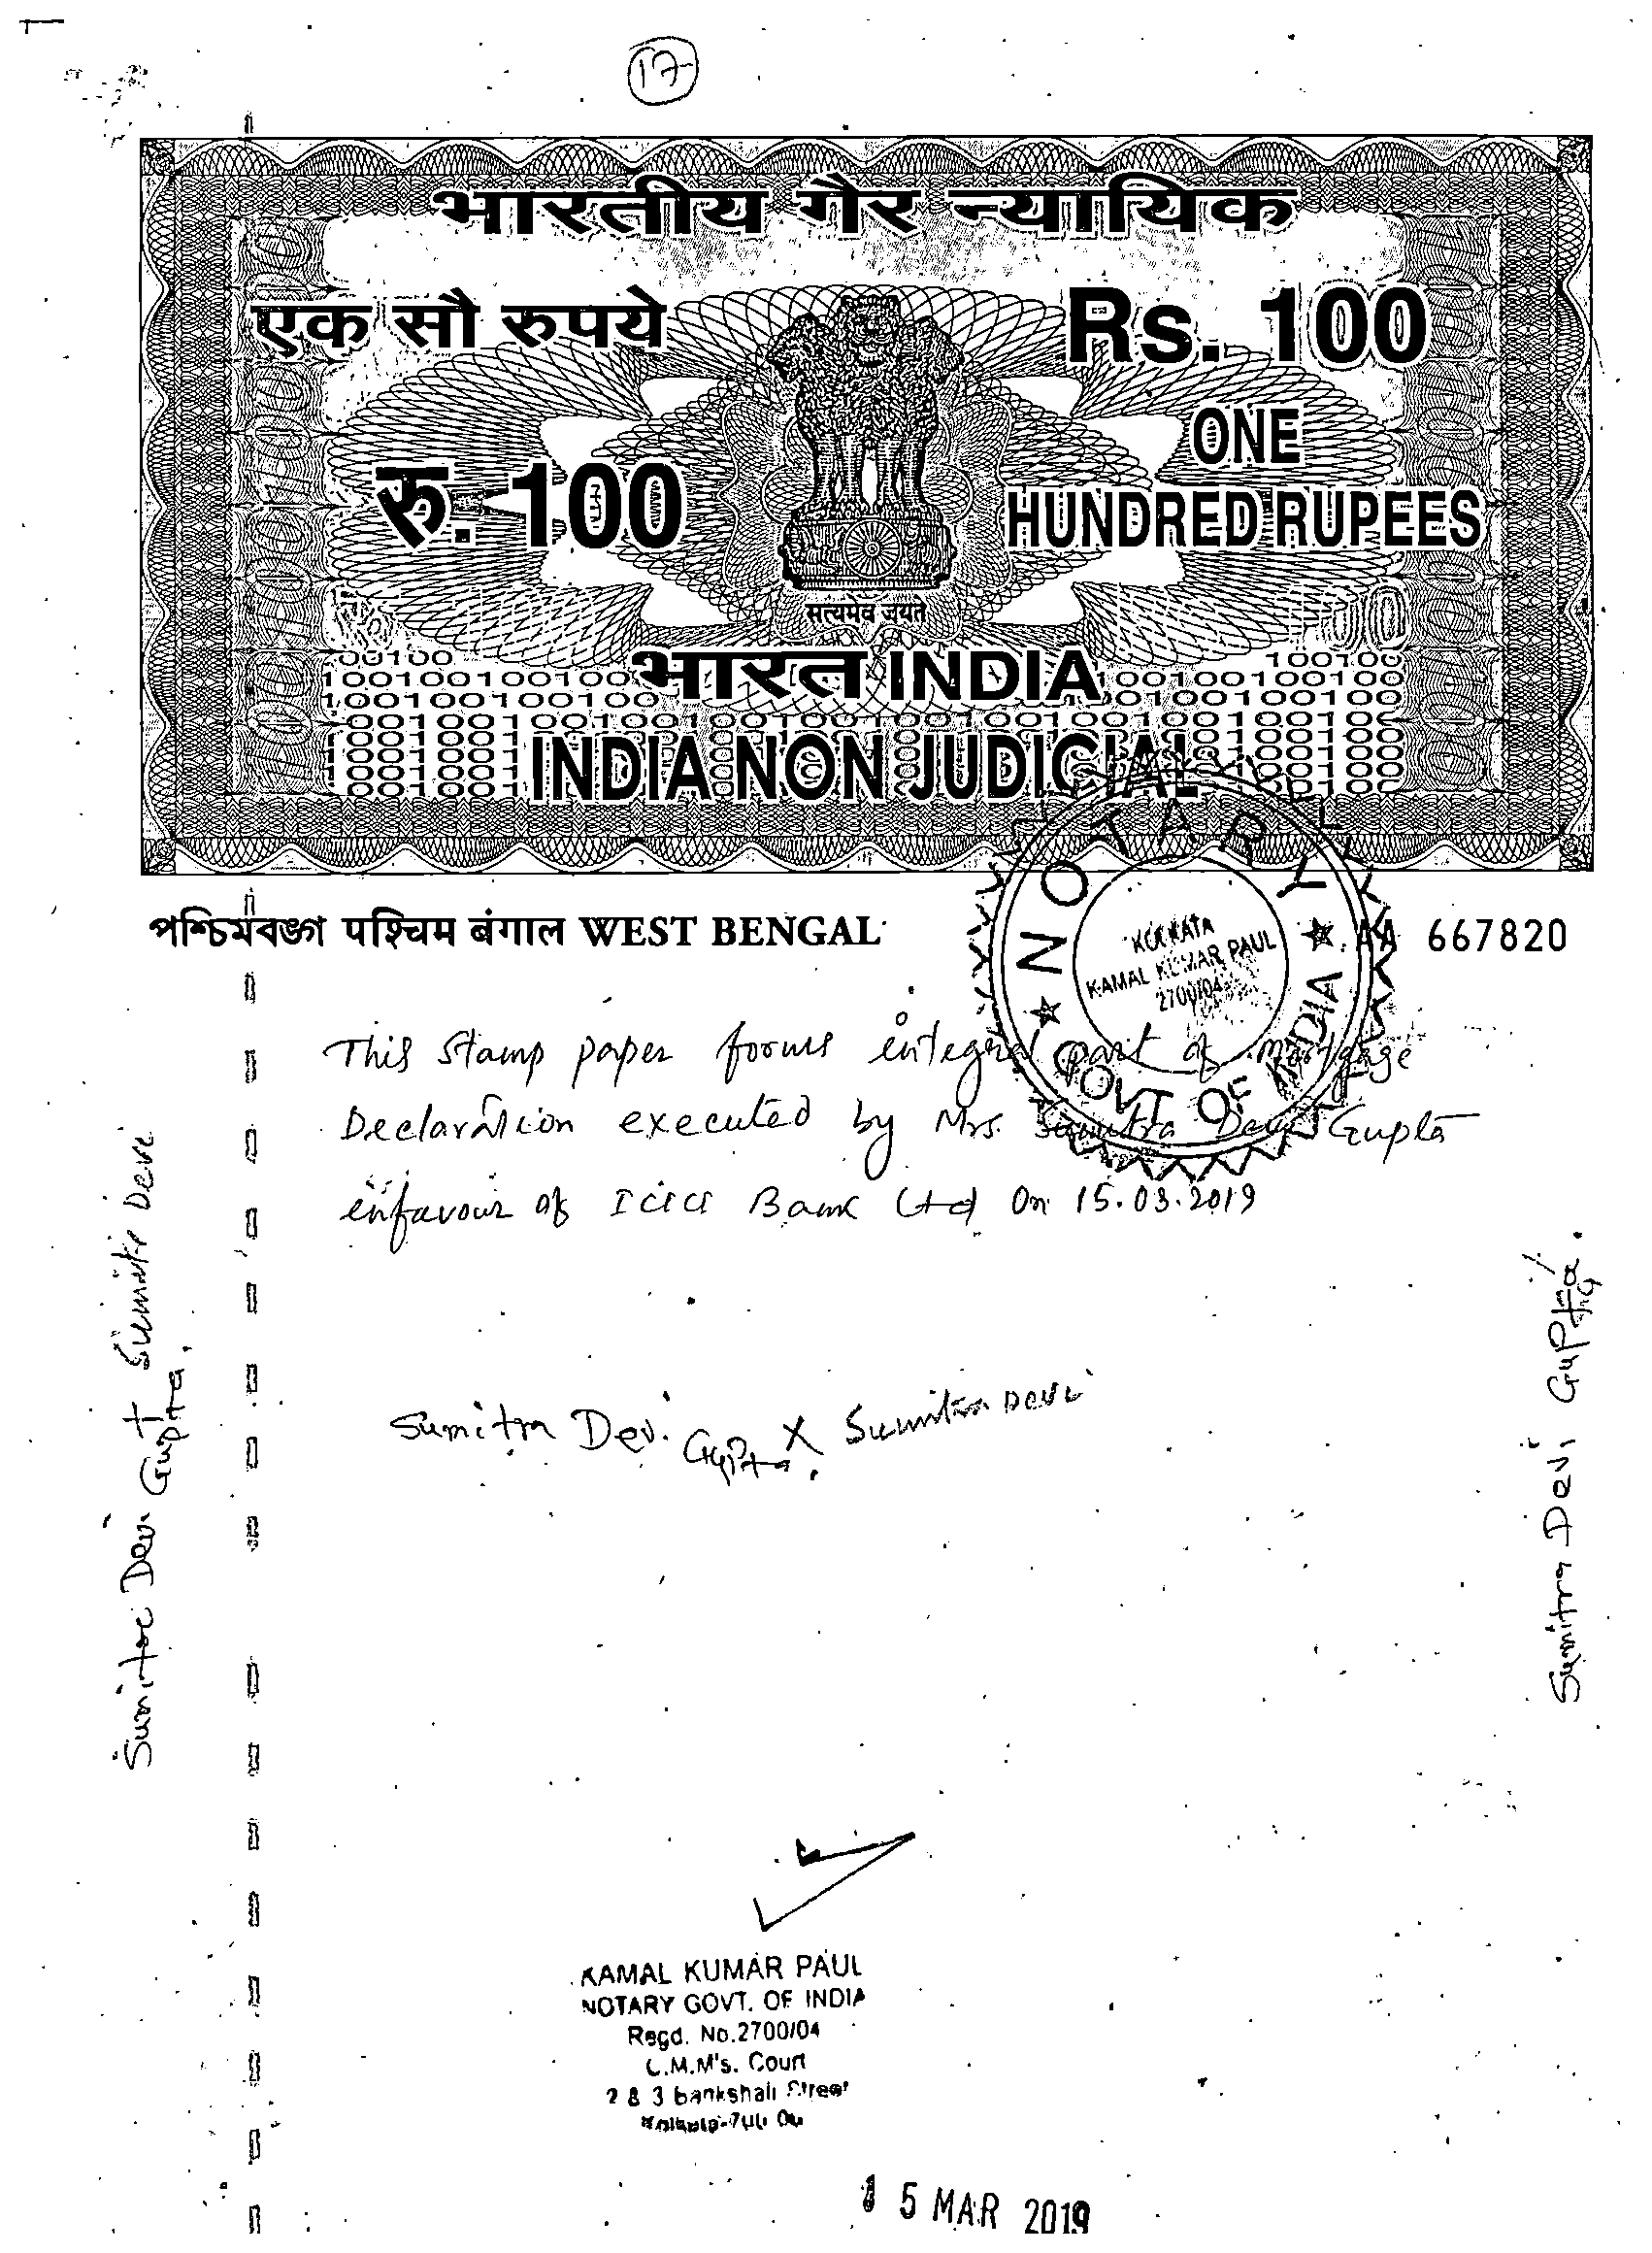 17
भारतीय गैर न्यायिक
एक सौ रुपये
Rs. 100
रु. 100
ONE
HUNDRED RUPEES
सत्यमेव जयते
भारत INDIA
INDIA NON JUDICIAL
পশ্চিমবঙ্গ पश्चिम बंगाल WEST BENGAL
AA 667820
NOTARY
GOVT OF INDIA
KOLKATA
KAMAL KUMAR PAUL
2700/04
This Stamp paper forms integral part of mortgage
Declaration executed by Mrs. Sumitra Devi Gupta
infavour of ICICI Bank Ltd On 15.03.2019
Sumitra Devi Gupta. X Sumitra Devi
Sumitra Devi Gupta. X Sumitra Devi
Sumitra Devi Gupta.
KAMAL KUMAR PAUL
NOTARY GOVT. OF INDIA
Regd. No.2700/04
C.M.M's. Court
2 & 3 bankshall Street
15 MAR 2019